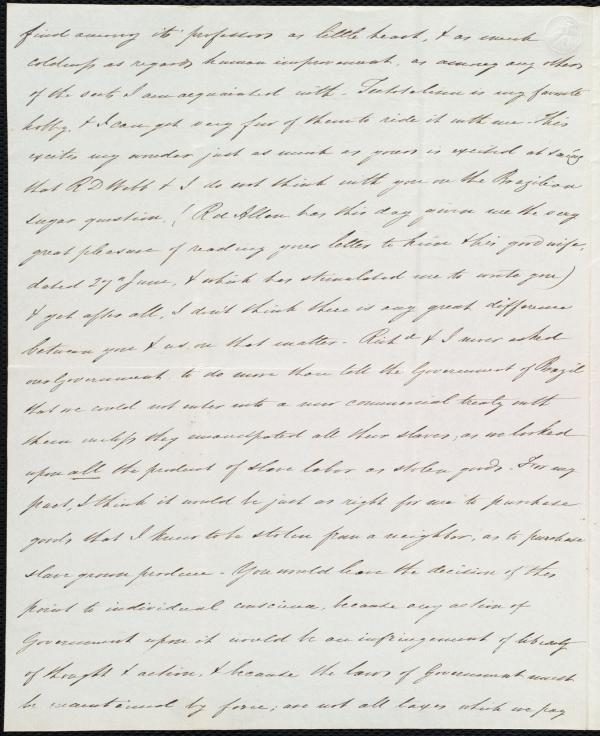 find among its professors as little heart, & as much
coldness as regards human improvement, as among any others
of the sects I am acquainted with - Teetotalism is my favorite
hobby, & I can get very few of them to ride it with me - This
excites my wonder just as much as yours is excited at seeing
that R D Webb & I do not think with you on the Brazilian
sugar question. (Rd Allen has this day given me the very
great pleasure of reading your letter to him & his good wife,
dated 27th June, & which has stimulated me to write you)
& yet after all, I don't think there is any great difference
between you & us on that matter - Richd & I never asked
our Government to do more than tell the Government of Brazil
that we could not enter into a new commercial treaty with
them unless they emancipated all their slaves; as we looked
upon all the product of slave labor as stolen goods - For my
part, I think it would be just as right for me to purchase
goods that I knew to be stolen from a neighbor, as to purchase
slave grown produce - You would leave the decision of this
point to individual conscience, because any action of
Government upon it would be an infringement of liberty
of thought & action, & because the laws of Government must
be maintained by force; are not all taxes which we pay